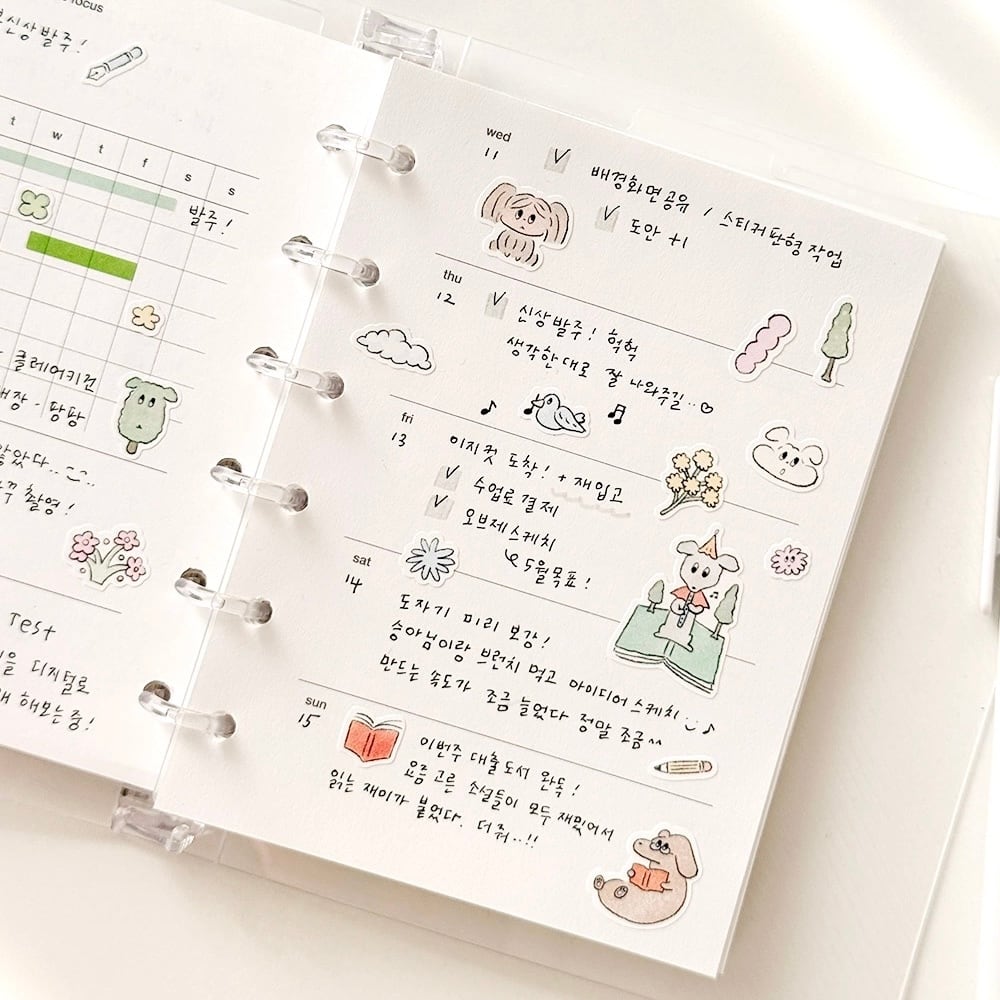 focus
신상발주!
t w t f s s
발주!
클레어키전
Test
디지털로
해보는중!
wed
11
V 배경화면공유 / 스티커판형작업
V 도안 +1
thu
12
V 신상발주! 헉헉
생각한대로 잘 나와주길..♡
♪ ♪ ♬
fri
13
이지컷 도착! + 재입고
V 수업료결제
V 오브제스케치
↳ 5월목표!
sat
14
도자기 미리 보강!
승아님이랑 브런치 먹고 아이디어스케치 ♪
만드는 속도가 조금 늘었다 정말 조금^^
sun
15
이번주 대출도서 완독!
요즘 고른 소설들이 모두 재밌어서
읽는 재미가 붙었다. 더줘..!!